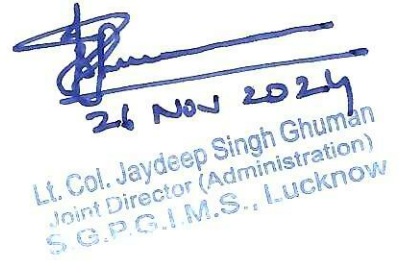 26 NOV 2024
Lt. Col. Jaydeep Singh Ghuman
Joint Director (Administration)
S.G.P.G.I.M.S., Lucknow